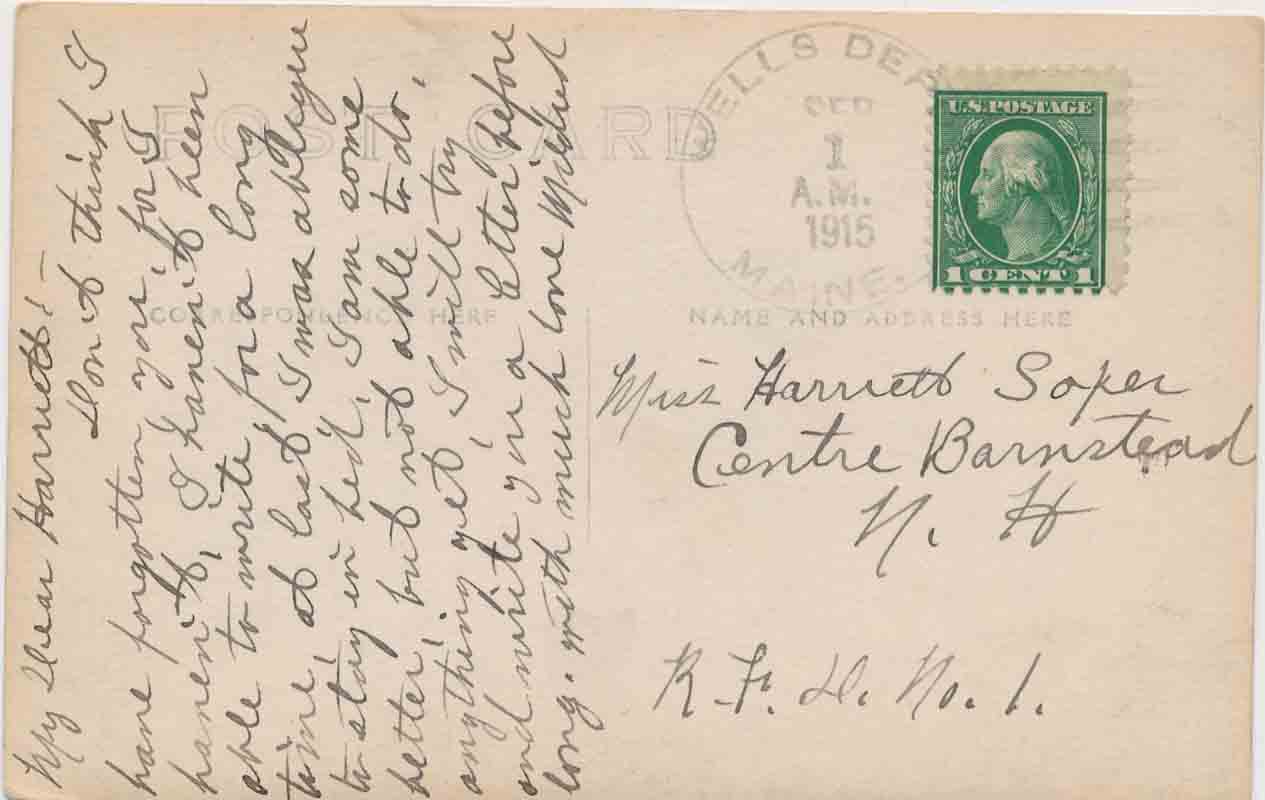 POST CARD
CORRESPONDENCE HERE
NAME AND ADDRESS HERE
WELLS DEPOT
SEP
1
A.M.
1915
MAINE
U.S. POSTAGE
1 CENT 1
My Dear Harriett! -
Don't think I
have forgotten you, for I
haven't, I haven't been
able to write for a long
time, at last I was obliged
to stay in bed, I am some
better, but not able to do
anything yet, I will try
and write you a letter before
long. with much love Mildred
Miss Harriett Soper
Centre Barnstead
N. H
R. F. D. No. 1.